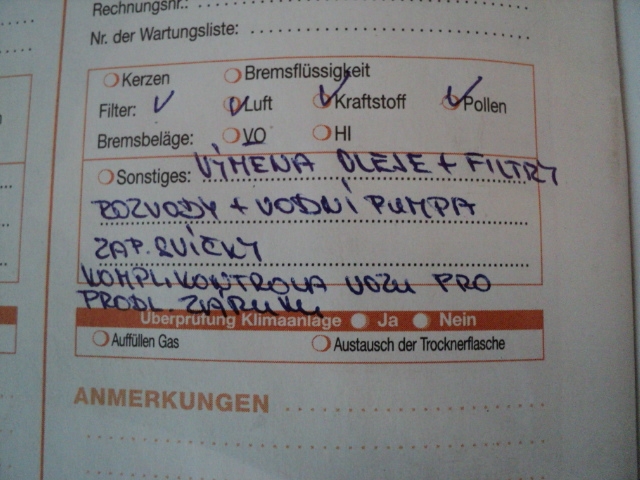 Rechnungsnr.:
Nr. der Wartungsliste:
Kerzen Bremsflüssigkeit
Filter: Luft Kraftstoff Pollen
Bremsbeläge: VO HI
Sonstiges: VÝMENA OLEJE + FILTRY
ROZVODY + VODNÍ PUMPA
ZAP. SVÍČKY
KOMPL. KONTROLA VOZU PRO
PRODL. ZÁRUKU
Überprüfung Klimaanlage Ja Nein
Auffüllen Gas Austausch der Trocknerflasche
ANMERKUNGEN